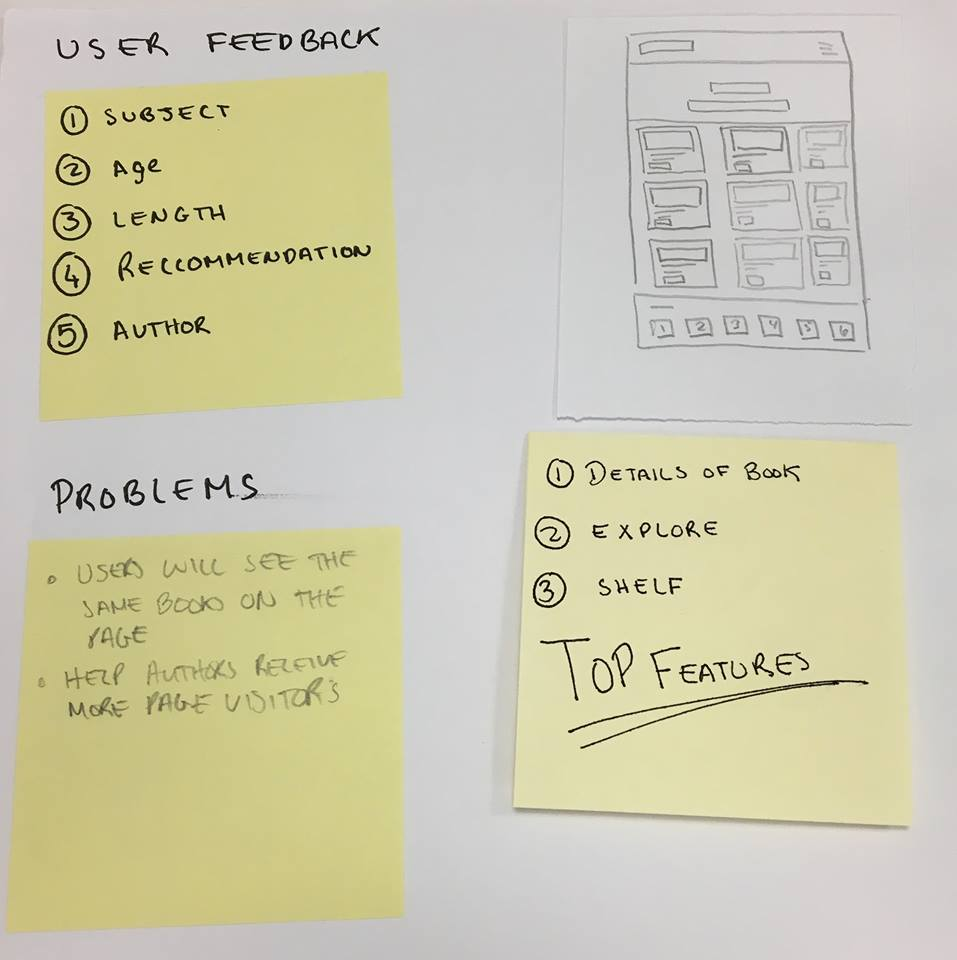 USER FEEDBACK
① SUBJECT
② Age
③ LENGTH
④ RECCOMMENDATION
⑤ AUTHOR
1 2 3 4 5 6
PROBLEMS
• USERS WILL SEE THE
SAME BOOKS ON THE
PAGE
• HELP AUTHORS RECEIVE
MORE PAGE VISITOR'S
① DETAILS OF BOOK
② EXPLORE
③ SHELF
TOP FEATURES